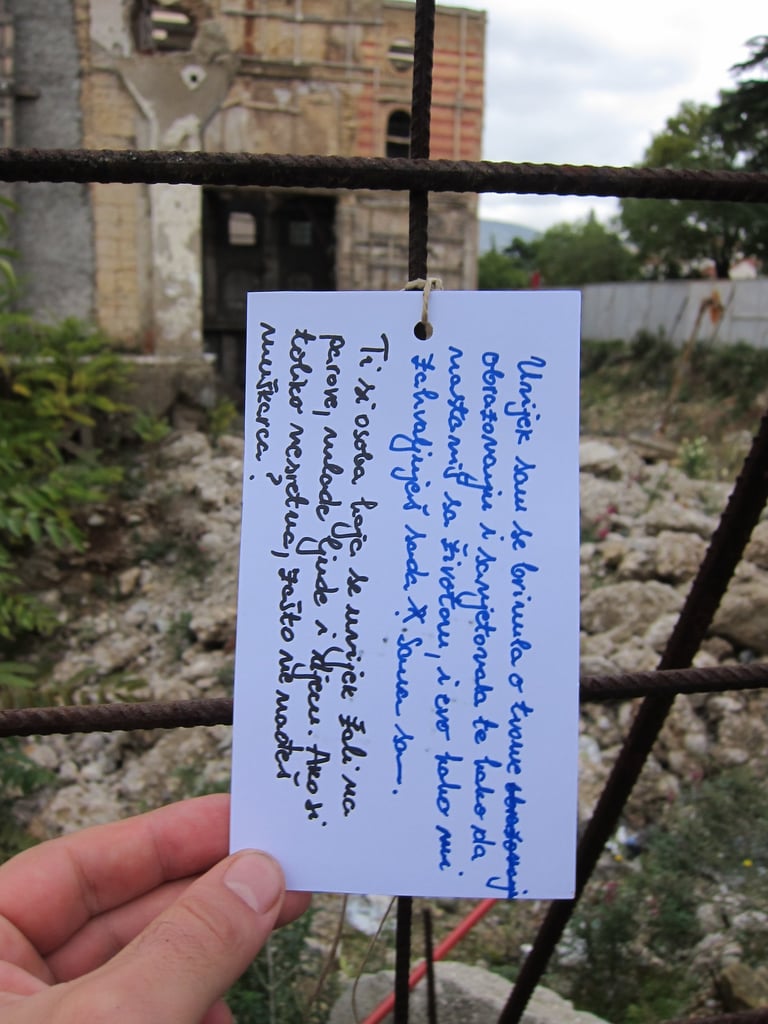 Uvijek sam se brinula o tvome obrazovanju
obrazovanju i savjetovala te kako da
nastaviš sa životom, i evo kako mi
zahvaljuješ sada *. Sama sam.
Ti si osoba koja se uvijek žali na
parove, mlade ljude i djecu. Ako si
toliko nesretna, zašto ne nađeš
muškarca?